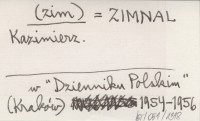 (zim) = ZIMNAL
Kazimierz.
w "Dzienniku Polskim"
(Kraków) 1954-1956